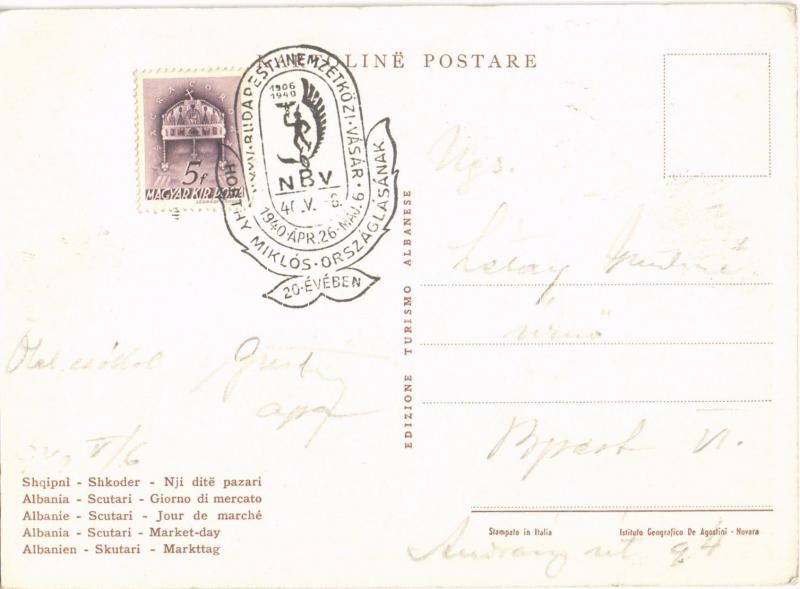 KARTOLINË POSTARE
SACRA CORONA
5f
MAGYAR KIR. POSTA
XXXV·BUDAPESTI·NEMZETKÖZI·VÁSÁR·
1906
1940
NBV
40.V.-6.
1940·ÁPR.26-MÁJ.6
HORTHY MIKLÓS·ORSZÁGLÁSÁNAK
20·ÉVÉBEN
EDIZIONE TURISMO ALBANESE
Ngs.
úrnő
Bpest VI.
Andrássy út 94
Ölel, csókol
apa
940 V/6
Shqipnl - Shkoder - Nji ditë pazari
Albania - Scutari - Giorno di mercato
Albanie - Scutari - Jour de marché
Albania - Scutari - Market-day
Albanien - Skutari - Markttag
Stampato in Italia
Istituto Geografico De Agostini - Novara